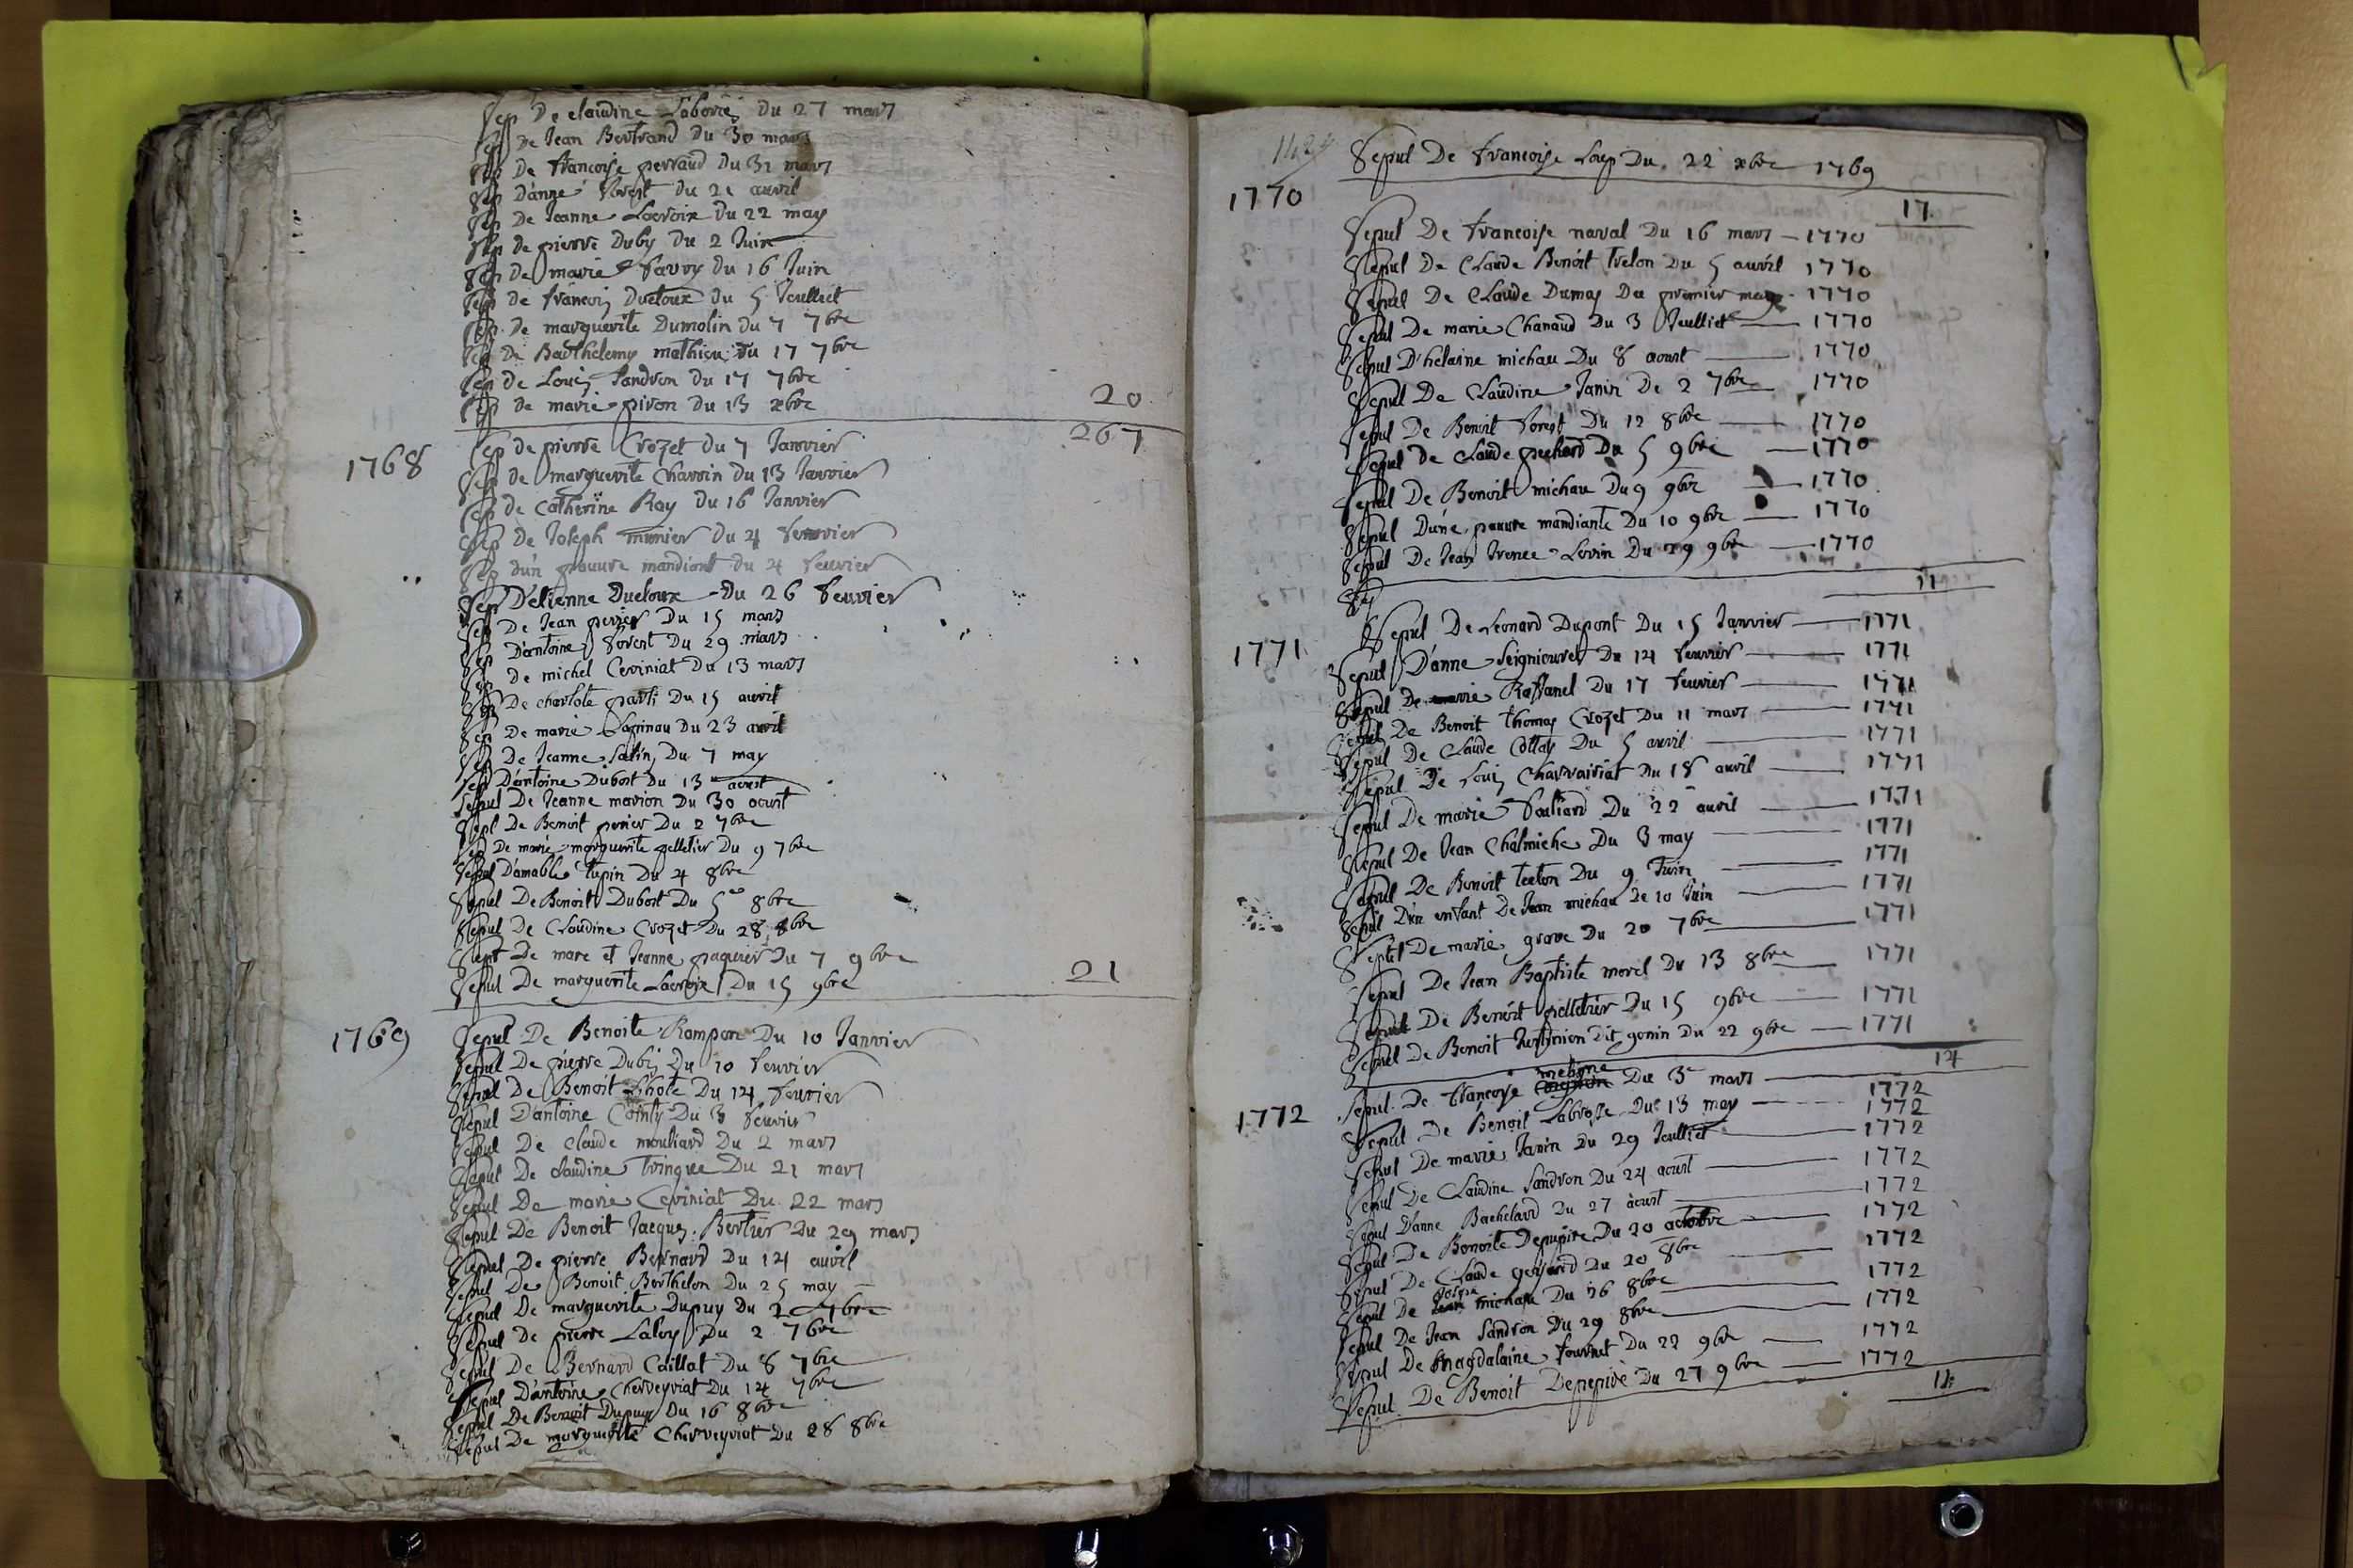 Sep De claudine Laborie Du 27 mars
Sep de Jean Bertrand Du 30 mars
Sep De francoise perraud Du 31 mars
Sep D'anne forest du 21 auril
Sep De Jeanne Lacroix Du 22 may
Sep de pierre Duby Du 2 Juin
Sep de marie Savoy du 16 Juin
Sep de francois Ducloux du 5 Jeulliet
Sep de marguerite Dumolin du 7 7bre
Sep De Barthelemy mathieu du 17 7bre
Sep de Louis Sandron du 17 7bre
Sep de marie piron du 13 xbre
20
267
1768
Sep de pierre Crozet du 7 Janvier
Sep de marguerite Charvin du 13 Janvier
Sep de catherine Ray du 16 Janvier
Sep de Joseph munier du 4 feuvrier
Sep d'un pauure mandiant du 4 feuvrier
Sep D'etienne Ducloux Du 26 feuvrier
Sep De Jean perrier Du 15 mars
Sep D'antoine forest Du 29 mars
Sep de michel Ceviniat Du 13 mars
Sep De charlote Du 15 auril
Sep De marie Du 23 auril
Sep De Jeanne Du 7 may
Sep D'antoine Dubost Du 13 aoust
Sepul De Jeanne marion Du 30 aoust
Sepl De Benoit perrier Du 2 7bre
Sep De marie marguerite pelletier Du 9 7bre
Sepul D'amable tupin Du 4 8bre
Sepul De Benoit Dubost Du 5 8bre
Sepul De Claudine Crozet Du 28 8bre
Sepul De marc et Jeanne Du 7 9bre
Sepul De marguerite Lacroix Du 15 9bre
21
1769
Sepul De Benoite Rampon Du 10 Janvier
Sepul De pierre Duby Du 10 feuvrier
Sepul De Benoit Lhote Du 14 feuvrier
Sepul D'antoine Du 3 feuvrier
Sepul De claude mouliard Du 2 mars
Sepul De claudine Du 21 mars
Sepul De marie Ceviniat Du 22 mars
Sepul De Benoit Jacques Bertier Du 29 mars
Sepul De pierre Bernard Du 14 auril
Sepul De Benoit Berthelon Du 25 may
Sepul De marguerite Dupuy Du 2 7bre
Sepul De pierre Du 2 7bre
Sepul De Bernard Caillat Du 8 7bre
Sepul D'antoine Cherveyriat Du 14 7bre
Sepul De Benoit Dupuy Du 16 8bre
Sepul De marguerite Cherveyriat Du 28 8bre
Sepul De francoise Loup Du 22 xbre 1769
17
1770
Sepul De francoise naval Du 16 mars 1770
Sepul De Claude Benoit Du 5 auril 1770
Sepul De Claude Dumas Du premier may 1770
Sepul De marie Chanaud Du 3 Jeulliet 1770
Sepul D'helaine michau Du 8 aoust 1770
Sepul De Claudine Janin De 2 7bre 1770
Sepul De Benoit forest Du 12 8bre 1770
Sepul De Claude Du 5 9bre 1770
Sepul De Benoit michau Du 9 9bre 1770
Sepul Dune pauure mandiante Du 10 9bre 1770
Sepul De Jean Du 29 9bre 1770
11
1771
Sepul De Leonard Dupont Du 15 Janvier 1771
Sepul D'anne Seignieuret Du 14 feuvrier 1771
Sepul De marie Raffanel Du 17 feuvrier 1771
Sepul De Benoit thomas Crozet Du 11 mars 1771
Sepul De Claude Du 5 auril 1771
Sepul De Louis Charvairiat Du 18 auril 1771
Sepul De marie Du 22 auril 1771
Sepul De Jean Chalmiche Du 3 may 1771
Sepul De Benoit Du 9 Juin 1771
Sepul D'un enfant De Jean michau De 10 Juin 1771
Sepul De marie grave Du 20 7bre 1771
Sepul De Jean Baptiste morel Du 13 8bre 1771
Sepul De Benoit pelletier Du 15 9bre 1771
Sepul de Benoit Dit gonin Du 22 9bre 1771
14
1772
Sepul De francoise Du 3e mars 1772
Sepul De Benoit Labrosse Du 13 may 1772
Sepul De marie Janin Du 29 Jeulliet 1772
Sepul De Claudine Sandron Du 24 aoust 1772
Sepul D'anne Bachelard Du 27 aoust 1772
Sepul De Benoite Du 20 actobre 1772
Sepul De Claude Du 20 8bre 1772
Sepul De michau Du 26 8bre 1772
Sepul De Jean Sandron Du 29 8bre 1772
Sepul De magdalaine fournet Du 22 9bre 1772
Sepul De Benoit Du 27 9bre 1772
11